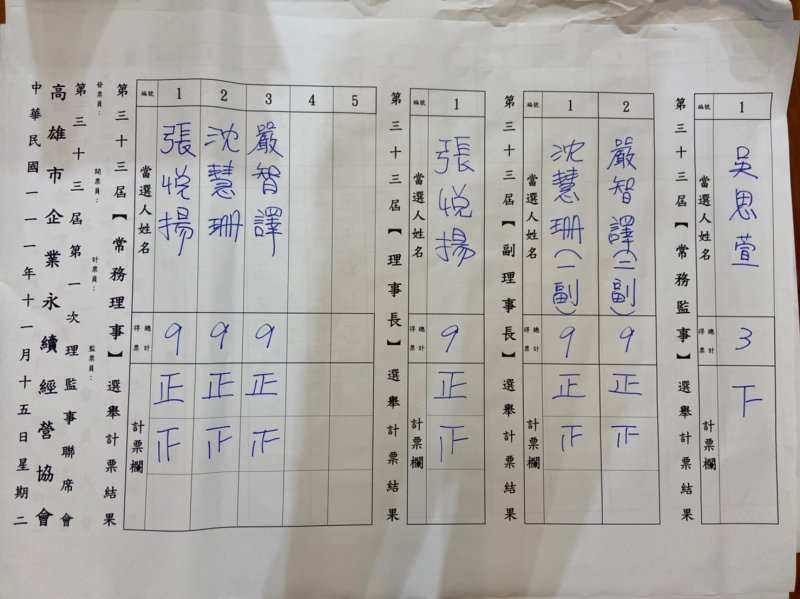 中華民國一一一年十一月十五日星期二
高雄市企業永續經營協會
第三十三屆第一次理監事聯席會
發票員： 開票員： 計票員： 監票員：
第三十三屆【常務理事】選舉計票結果
編號 當選人姓名 總計得票 計票欄
1 張悅揚 9 正
2 沈慧珊 9 正
3 嚴智譯 9 正
4
5
第三十三屆【理事長】選舉計票結果
編號 當選人姓名 總計得票 計票欄
1 張悅揚 9 正
第三十三屆【副理事長】選舉計票結果
編號 當選人姓名 總計得票 計票欄
1 沈慧珊(一副) 9 正
2 嚴智譯(二副) 9 正
第三十三屆【常務監事】選舉計票結果
編號 當選人姓名 總計得票 計票欄
1 吳思萱 3 下